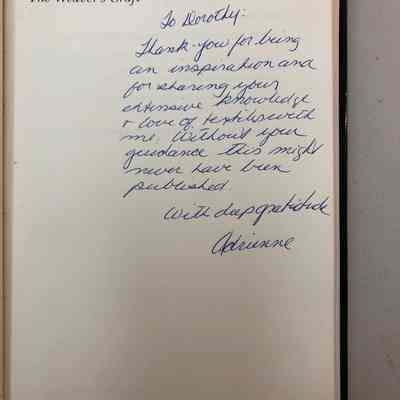 The Weaver's Craft
To Dorothy:
Thank-you for being
an inspiration and
for sharing your
extensive knowledge
+ love of textiles with
me. Without your
guidance this might
never have been
published.
With deep gratitude
Adrienne